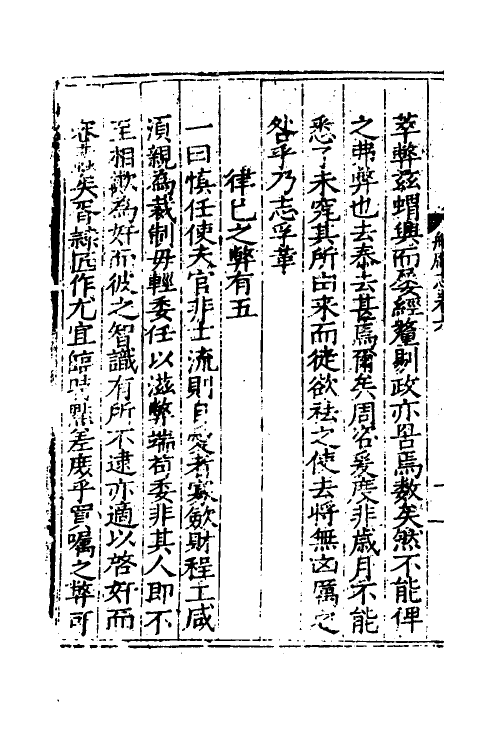 萃弊茲蝟輿而晏經釐剔政亦咎焉數矣然不能俾
之弗弊也去泰去甚焉爾矣周咨爰度非歲月不能
悉了未究其所由来而徒欲袪之使去將無凶厲之
咎乎乃志孚革
律己之弊有五
一曰慎任使夫官非士流則自愛者寡歛財程工咸
須親為裁制毋輕委任以滋弊端苟委非其人即不
至相欺為奸而彼之智識有所不逮亦適以啓奸而
矣胥隸匠作尤宜臨時點差庶乎買囑之弊可